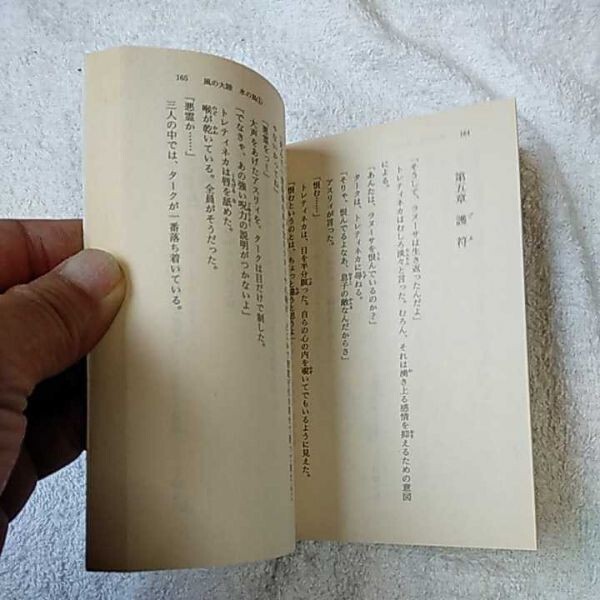 164
第五章 護符
「そうして、ラヌーサは生き返ったんだよ」
トレティネカはむしろ淡々と言った。むろん、それは湧き上る感情を抑えるための意図
による。
「あんたは、ラヌーサを恨んでいるのか？」
タークは、トレティネカに尋ねる。
「そりゃ、恨んでるよなあ。息子の敵なんだからさ」
アスリィが言った。
「恨む……」
トレティネカは、目を半分瞑った。自らの心の内を覗いてでもいるように見えた。
「恨むというのとは、ちょっと違うと思うよ」
165 風の大陸
「悪霊をっ！」
大声をあげたアスリィを、タークは目だけで制した。
「でなきゃ、あの強い呪力の説明がつかないよ」
トレティネカは唇を舐めた。
喉が乾いている。全員がそうだった。
「悪霊か……」
三人の中では、タークが一番落ち着いている。